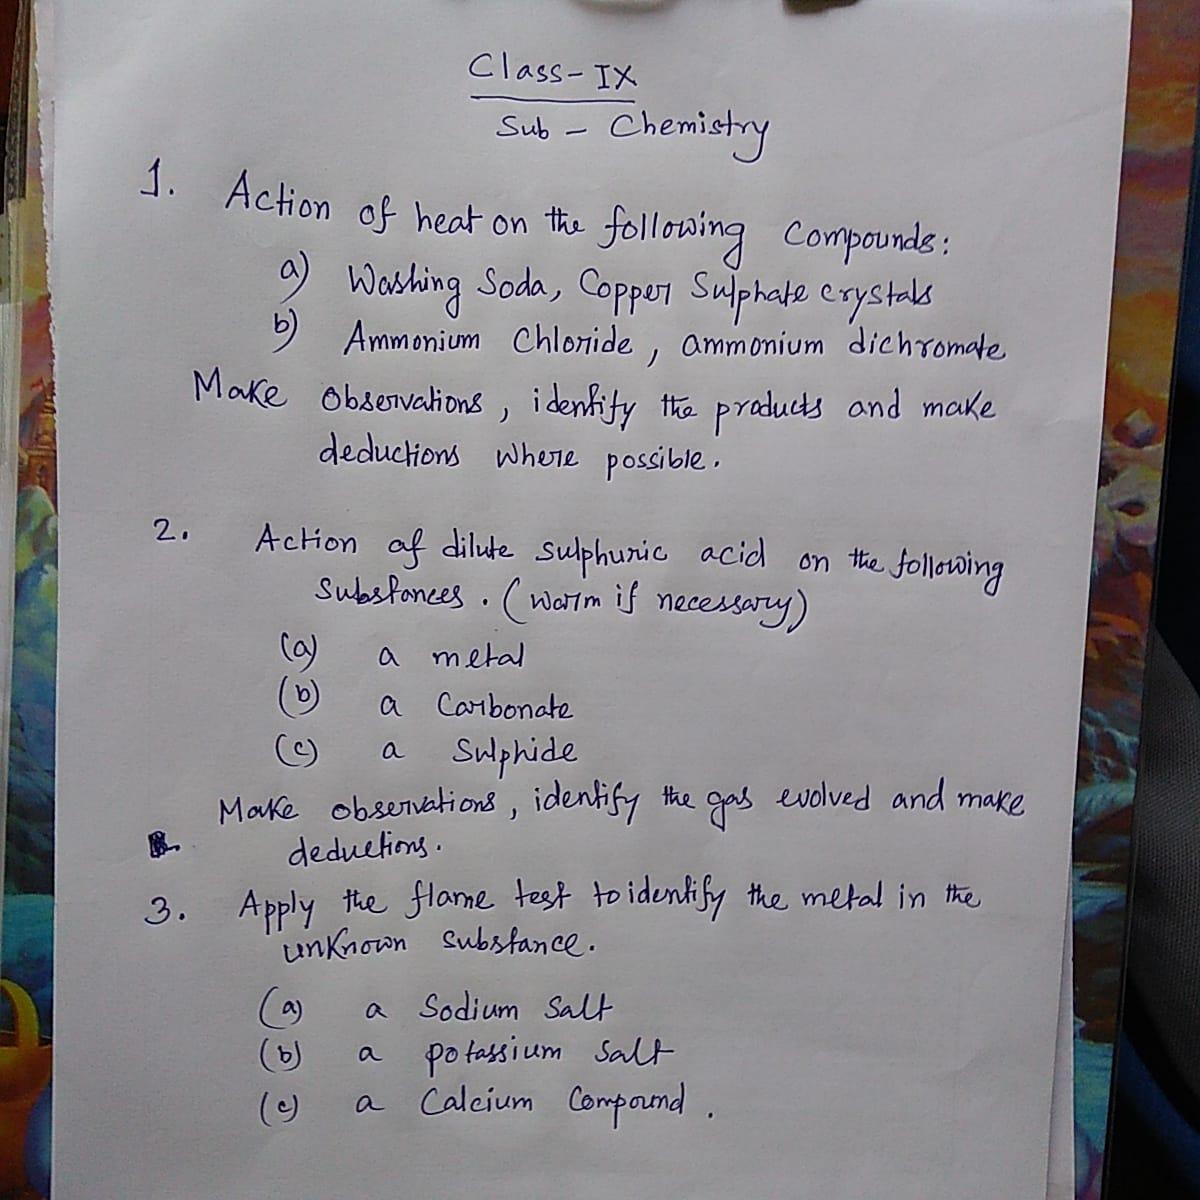 Class-IX
Sub - Chemistry
1. Action of heat on the following Compounds:
a) Washing Soda, Copper Sulphate crystals
b) Ammonium Chloride, ammonium dichromate
Make observations, identify the products and make
deductions where possible.
2. Action of dilute sulphuric acid on the following
Substances. (warm if necessary)
(a) a metal
(b) a Carbonate
(c) a Sulphide
Make observations, identify the gas evolved and make
deductions.
3. Apply the flame test to identify the metal in the
unknown substance.
(a) a Sodium Salt
(b) a potassium Salt
(c) a Calcium Compound.